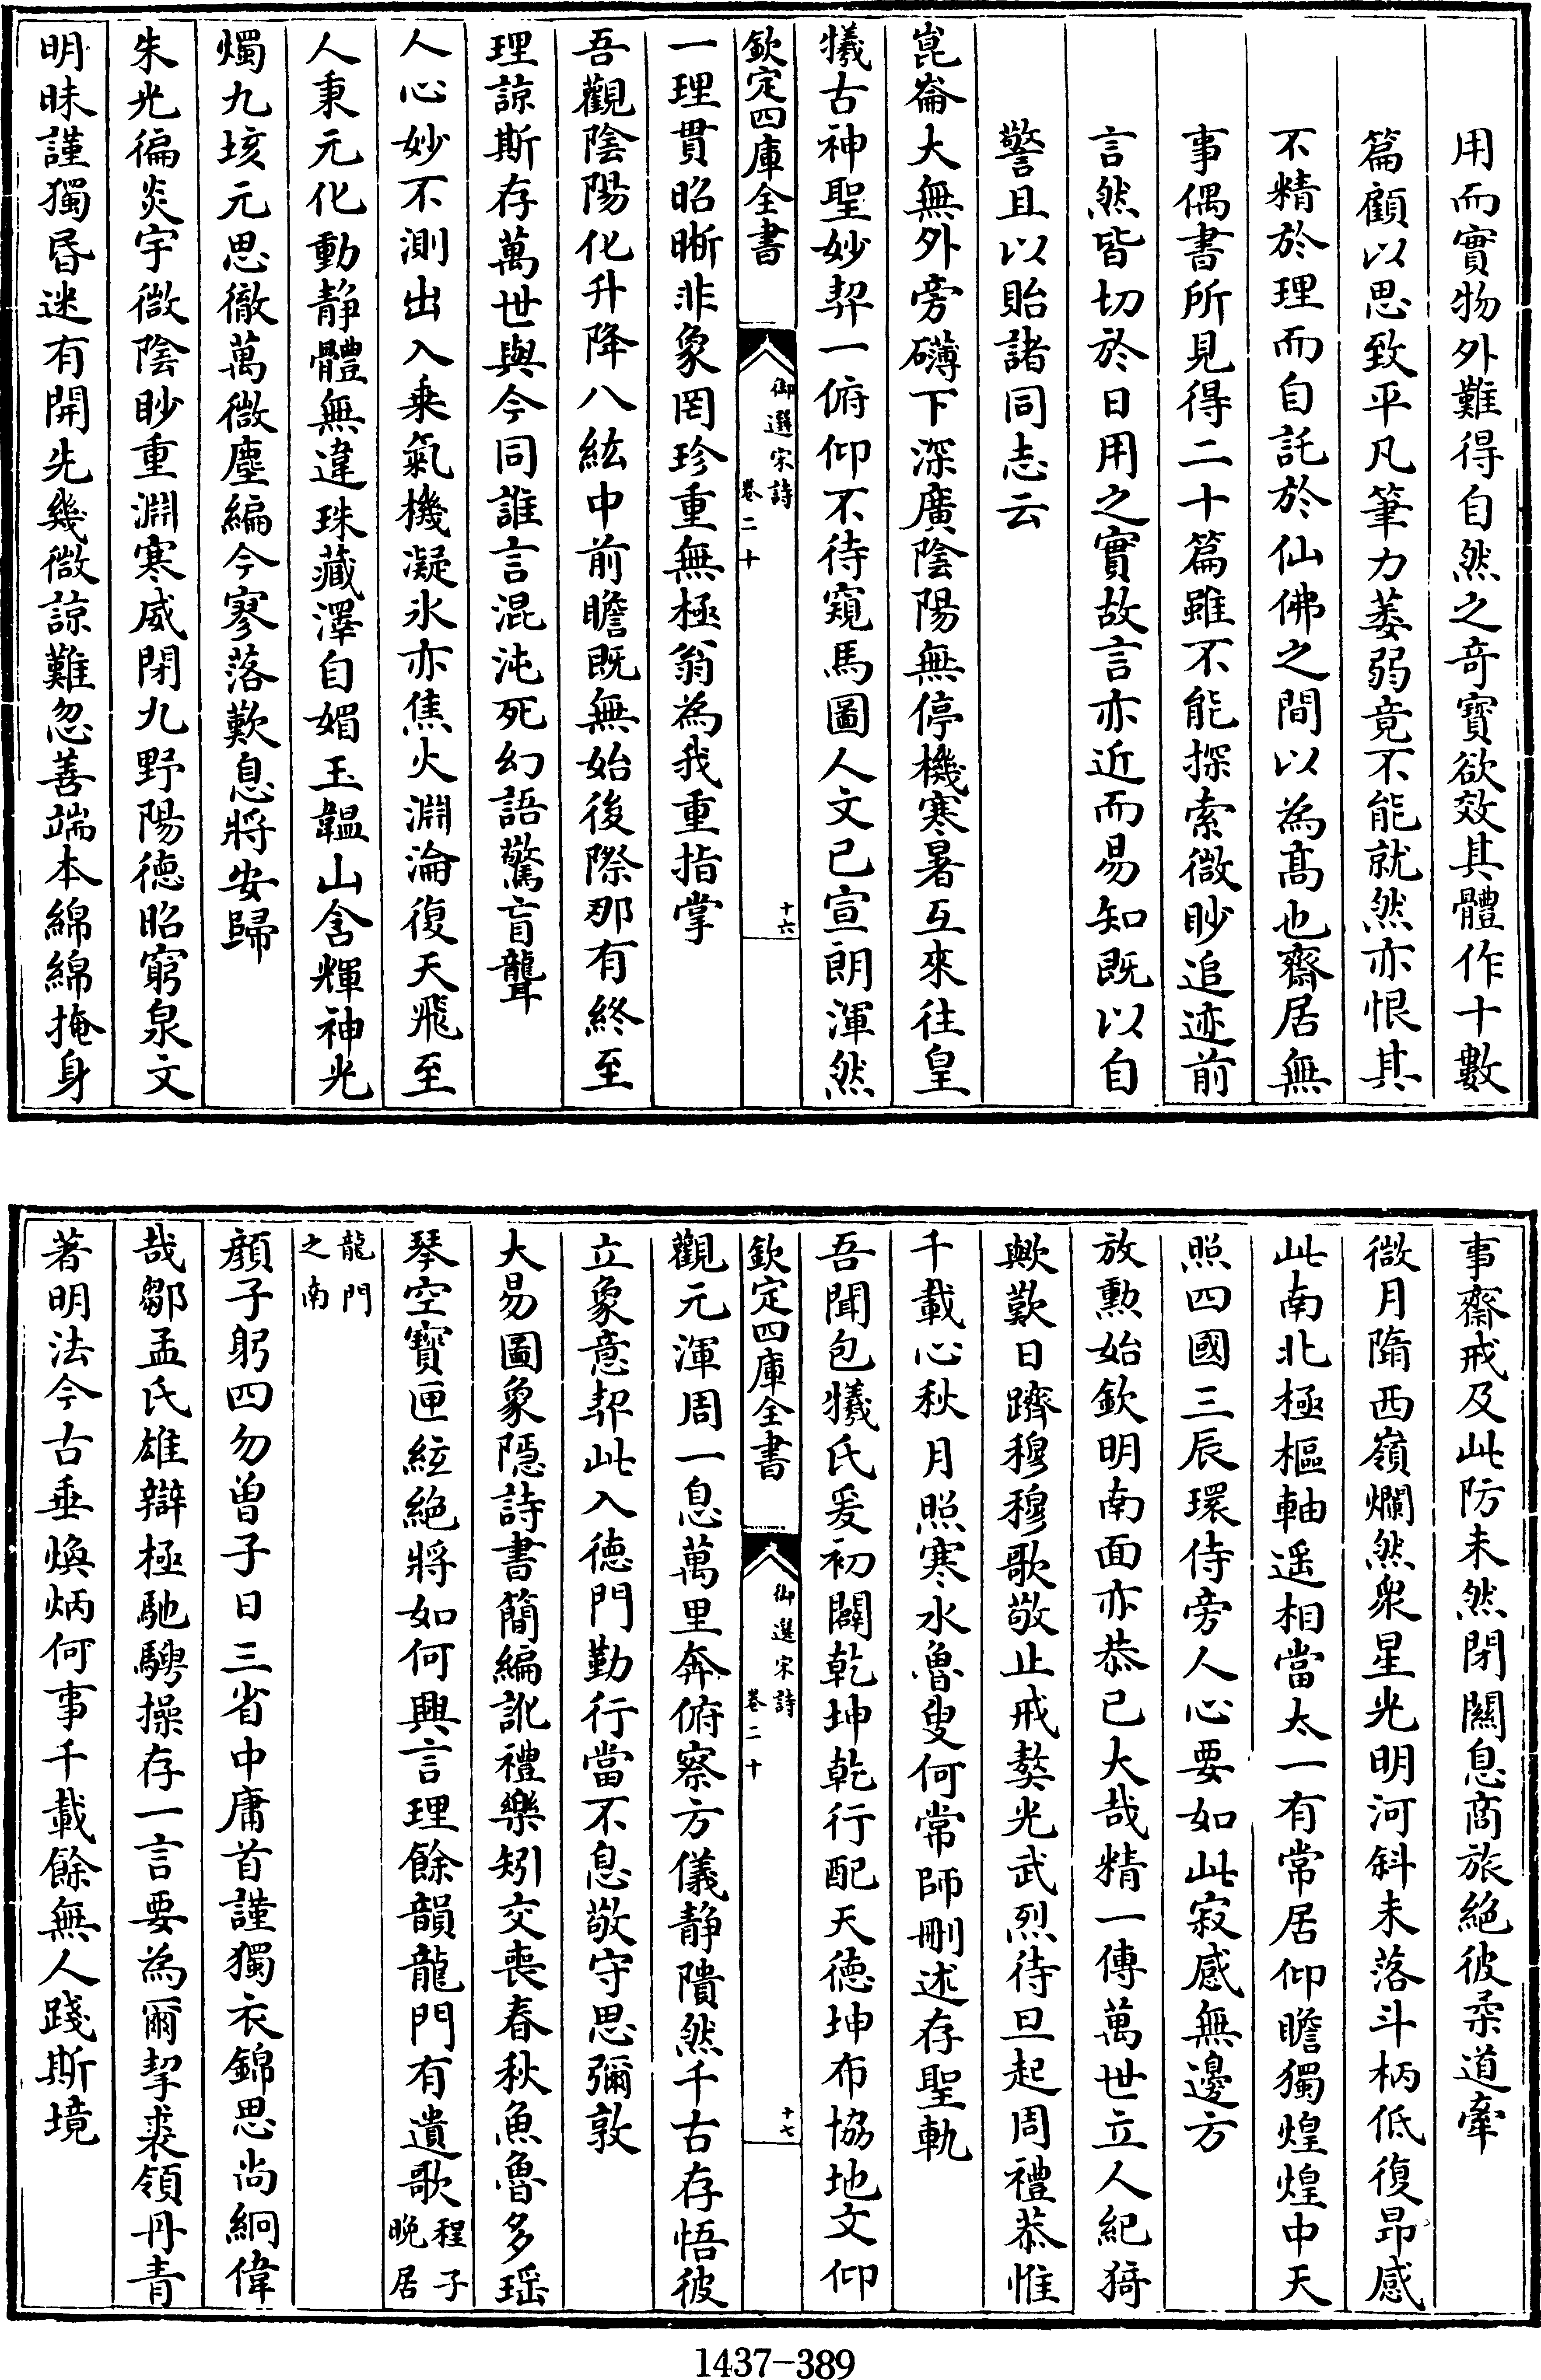 用而實物外難得自然之奇寶欲效其體作十數
篇顧以思致平凡筆力萎弱竟不能就然亦恨其
不精於理而自託於仙佛之間以為髙也齋居無
事偶書所見得二十篇雖不能探索微眇追迹前
言然皆切於日用之實故言亦近而易知既以自
警且以貽諸同志云
崑崙大無外旁礴下深廣陰陽無停機寒暑互來往皇
犧古神聖妙契一俯仰不待窺馬圖人文已宣朗渾然
欽定四庫全書
御選宋詩
卷二十
十六
一理貫昭晰非象罔珍重無極翁為我重指掌
吾觀陰陽化升降八紘中前瞻既無始後際那有終至
理諒斯存萬世與今同誰言混沌死幻語驚盲聾
人心妙不測出入乗氣機凝氷亦焦火淵淪復天飛至
人秉元化動静體無違珠藏澤自媚玉韞山含輝神光
燭九垓元思徹萬微塵編今寥落歎息將安歸
朱光徧炎宇微陰眇重淵寒威閉九野陽徳昭窮泉文
明昧謹獨昏迷有開先幾微諒難忽善端本綿綿掩身
事齋戒及此防未然閉關息商旅絶彼柔道牽
微月隋西嶺爛然衆星光明河斜未落斗柄低復昻感
此南北極樞軸遥相當太一有常居仰瞻獨煌煌中天
照四國三辰環侍旁人心要如此寂感無邊方
放勲始欽明南面亦恭已大哉精一傳萬世立人紀猗
歟歎日躋穆穆歌敬止戒獒光武烈待旦起周禮恭惟
千載心秋月照寒水魯叟何常師刪述存聖軌
吾聞包犧氏爰初闢乾坤乾行配天徳坤布協地文仰
欽定四庫全書
御選宋詩
卷二十
十七
觀元渾周一息萬里奔俯察方儀静隤然千古存悟彼
立象意契此入徳門勤行當不息敬守思彌敦
大易圖象隱詩書簡編訛禮樂矧交喪春秋魚魯多瑶
琴空寶匣絃絶將如何興言理餘韻龍門有遺歌程子
晚居
龍門
之南
顔子躬四勿曾子日三省中庸首謹獨衣錦思尚絅偉
哉鄒孟氏雄辯極馳騁操存一言要為爾挈裘領丹青
著明法今古垂煥炳何事千載餘無人踐斯境
1437-389